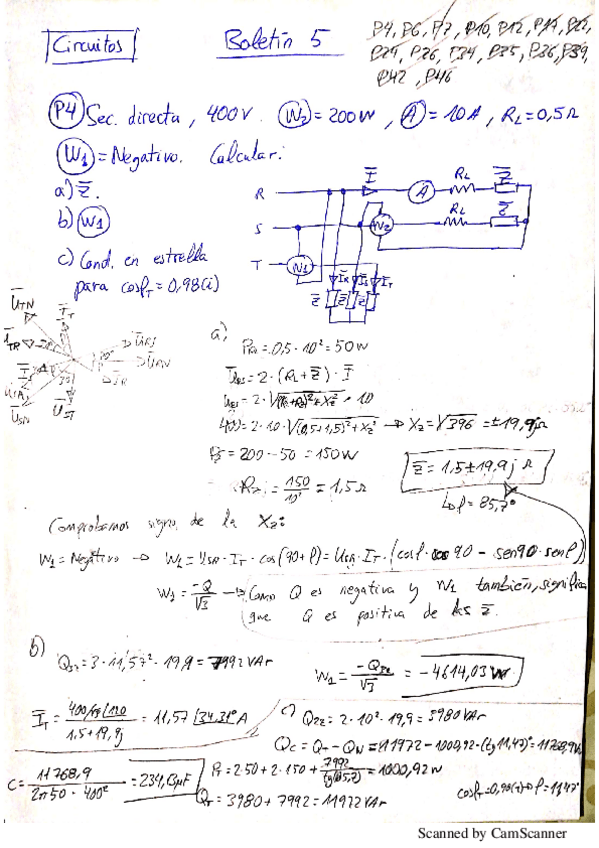 Circuitos
Boletín 5
P4, P6, P7, P10, P12, P17, P22,
P29, P26, T34, P35, P36, P39,
P42, P46
P4 Sec. directa, 400V. W2 = 200W, A = 10A, RL = 0,5Ω
W1 = Negativo. Calcular:
a) Z̅.
b) W1
c) Cond. en estrella
para cosφT = 0,98(i)
R
S
T
I̅
A
RL
Z̅
RL
Z̅
W2
W1
I̅R
I̅S
I̅T
Z̅
Z̅
Z̅
U̅TN
I̅T
U̅TR
U̅RS
U̅RN
I̅R
U̅SN
U̅ST
a)
PR = 0,5 · 10² = 50W
U̅RS = 2 · (RL + Z̅) · I̅
URS = 2 · √(RL+RZ)² + XZ² · 10
400 = 2 · 10 · √(0,5+1,5)² + XZ² → XZ = √396 = ±19,9jΩ
PZ = 200 - 50 = 150W
RZ = 150/10² = 1,5Ω
Z̅ = 1,5 ± 19,9j Ω
↳ φ = 85,7°
Comprobamos signo de la XZ:
W1 = Negativo → W1 = USR · IT · cos(90+φ) = USR · IT · (cosφ · cos90 - sen90 · senφ)
W1 = -Q/√3 → Como Q es negativa y W1 también, significa
que Q es positiva de las Z̅.
b)
Q3Z = 3 · 11,57² · 19,9 = 7992 VAr
W1 = -Q3Z/√3 = -4614,03W
I̅T = 400/√3 |120 / 1,5+19,9j = 11,57 |34,31° A
c) Q2Z = 2 · 10² · 19,9 = 3980 VAr
QC = QT - QN = 11972 - 1000,92 · (tg 11,47) = 11768,9VAr
C = 11768,9 / 2π50 · 400² = 234,13μF
PT = 2·50 + 2·150 + 7992/tg(85,7) = 1000,92W
cosφT = 0,98(i) → φ = 11,47°
QT = 3980 + 7992 = 11972 VAr
Scanned by CamScanner